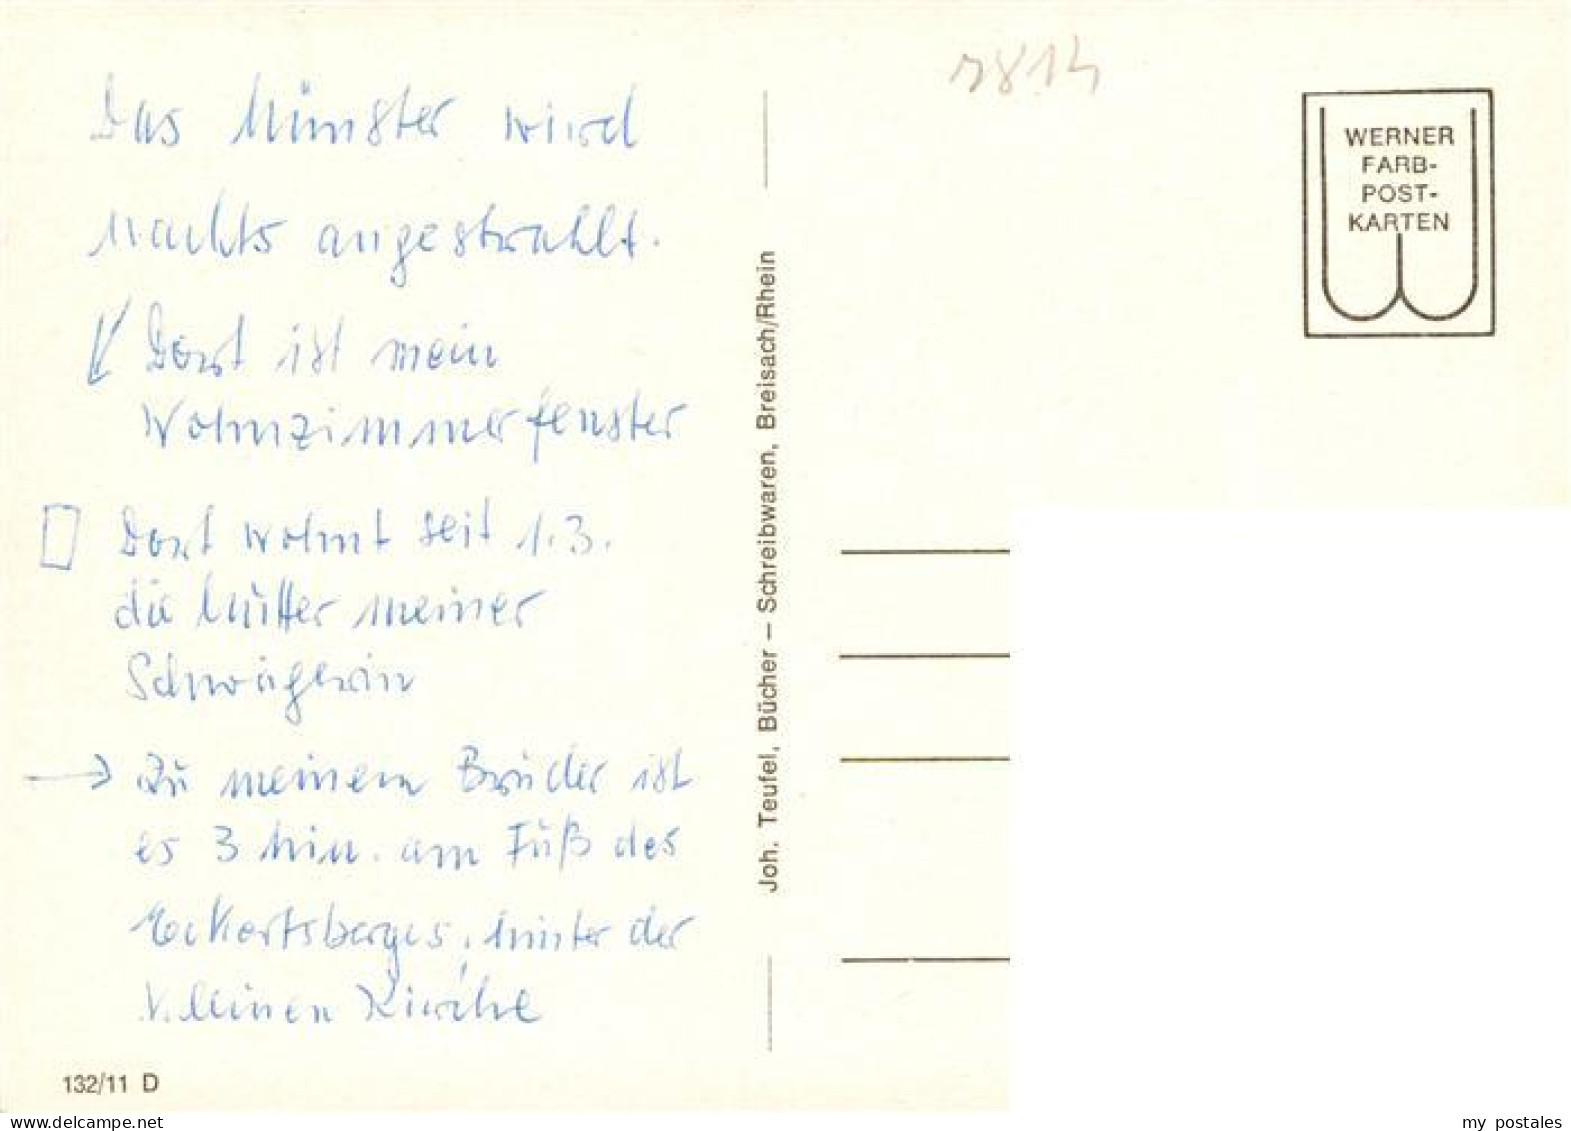 Das Münster wird
nachts angestrahlt.
Dort ist mein
Wohnzimmerfenster
Dort wohnt seit 1.3.
die Mutter meiner
Schwägerin
→ Zu meinem Bruder ist
es 3 Min. am Fuß des
Eckartsberges, hinter der
kleinen Kirche
132/11 D
Joh. Teufel, Bücher – Schreibwaren, Breisach/Rhein
7814
WERNER
FARB-
POST-
KARTEN
delcampe.net
my postales